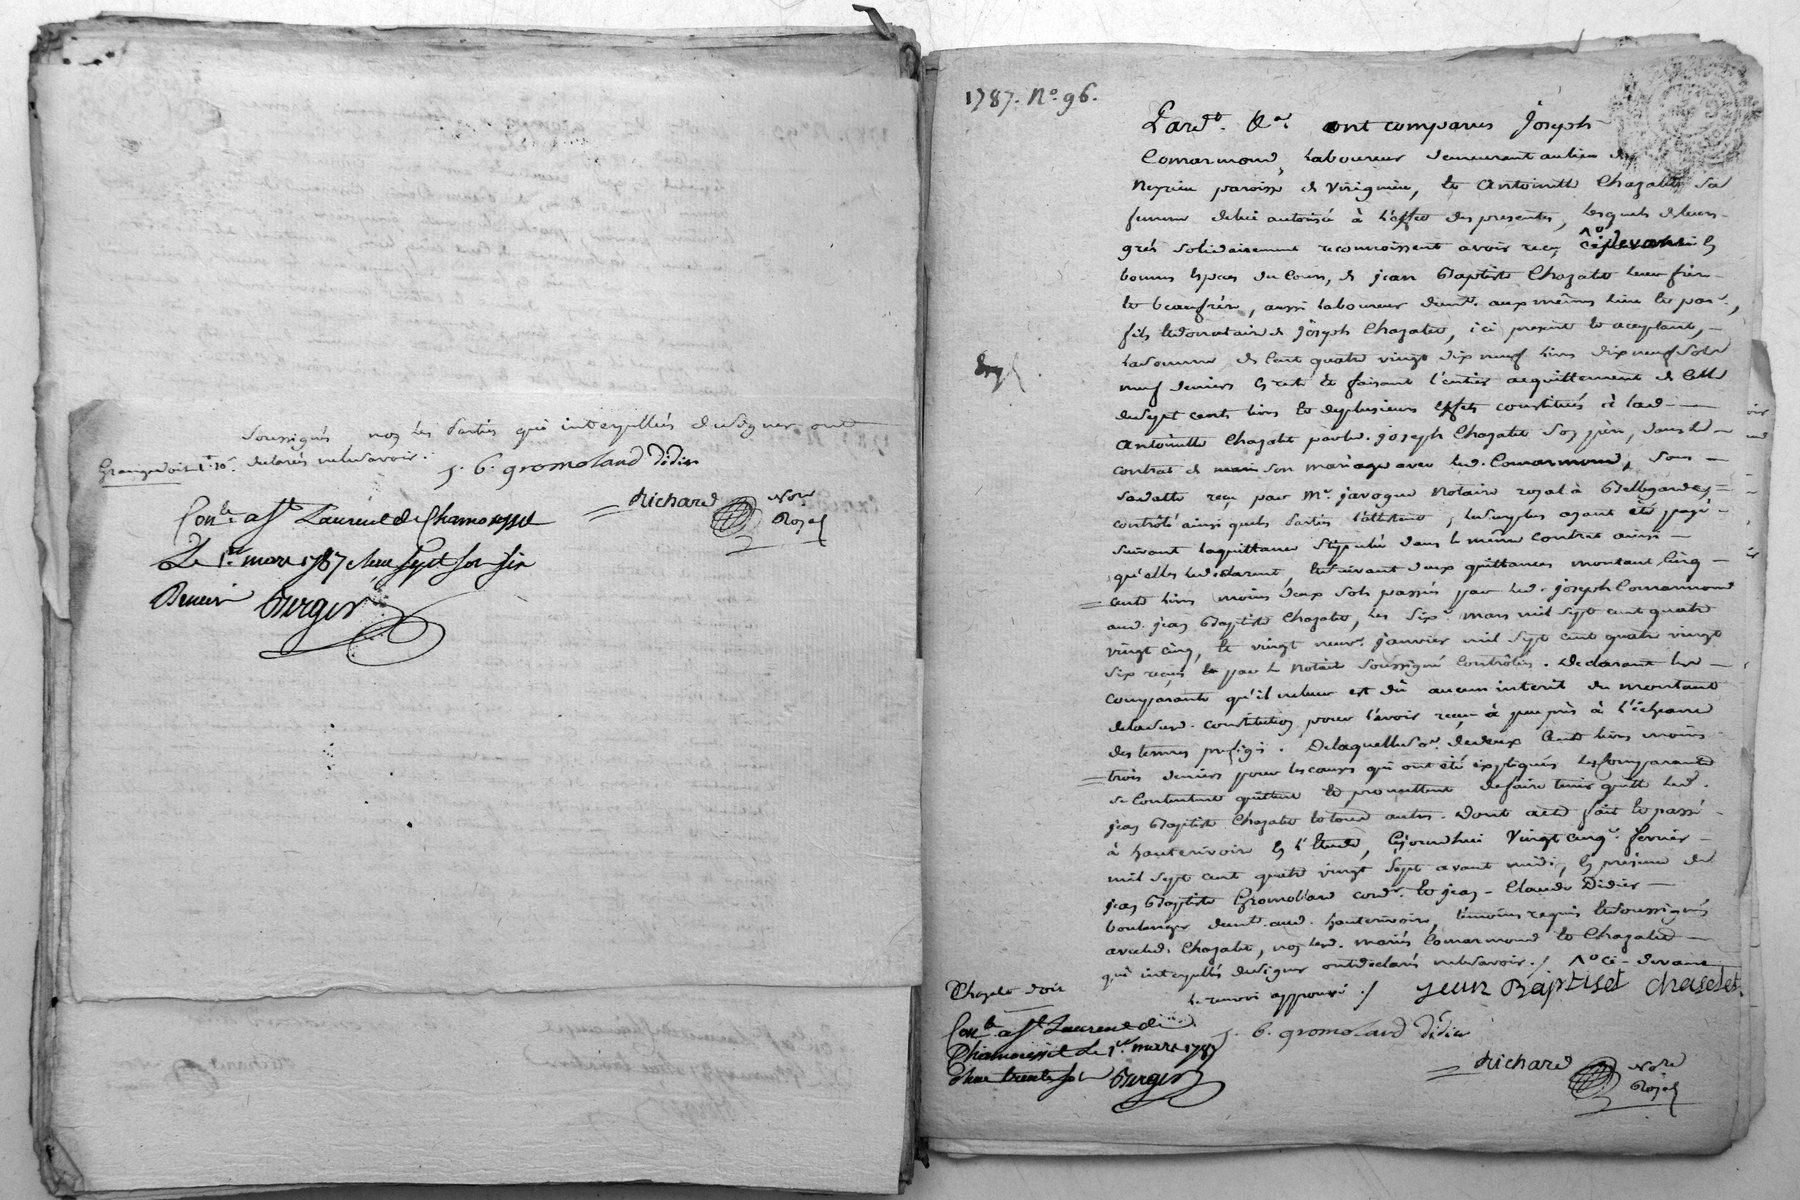 soussignés, non les parties qui interpellés de signer ont
Grange doit 1# 10s. déclarés ne le savoir.
J. B. gromoland Didier
Richard Nore
Royal
Conlé a St Laurent de Chamousset
Le 1er mars 1787 Reçu sept sols six
Deniers Berger
1787. No. 96.
Pardt. &a. ont comparus Joseph
Comarmond, Laboureur demeurant au lieu de
Neyrieu paroisse de Virigneu, et Antoinette Chazalet sa
femme de lui autorisée à l'effet des presentes, lesquels de leurs
grés solidairement reconnoissent avoir reçu ^o cy devant en
bonnes espèces du Cours, de jean Baptiste Chazalet leur frère
et beaufrère, aussi laboureur demt. aux mêmes lieu et par.,
fils et donataire de joseph Chazalet, ici present et acceptant,
la somme de Cent quatre vingt dix neuf livres dix neuf sols
neuf deniers es reste et faisant l'entier acquittement de celle
de sept cents livres et de plusieurs effets constitués à lad.
Antoinette Chazalet par led. joseph Chazalet son père, dans le
contrat de mari son mariage avec led. Comarmond, sous
sa datte reçu par Me. javogue Notaire royal à Bellegarde,
contrôlé ainsi que les parties l'attestent, le surplus ayant été payé
suivant la quittance stipulée dans le même contrat ainsi
qu'elles le déclarent et suivant deux quittances montant cinq
cents livres moins deux sols passées par led. joseph Comarmond
aud. jean Baptiste Chazalet, les six mars mil sept cent quatre
vingt cinq, et vingt neuv. janvier mil sept cent quatre vingt
six reçues et par le Notaire soussigné Contrôlées. Declarant les
comparants qu'il ne leur est dû aucun interêt du montant
de lad. constitution pour l'avoir reçu à peu près à l'échéance
des termes prefigés. De laquelle so. de deux Cent livres moins
trois deniers pour les causes qui ont été expliquées les Comparants
se Contentent quittent et promettent de faire tenir quitte led.
jean Baptiste Chazalet et tous autres. Dont acte fait et passé
à hauterivoire en l'Etude, Cejourdhui Vingt cinq fevrier
mil sept cent quatre vingt sept avant midi, en présence de
jean Baptiste Gromoland cord. et jean-Claude Didier
boulanger demt. aud. hauterivoire, témoins requis et soussignés
avec led. Chazalet, non led. mariés Comarmond et Chazalet
qui interpellés de signer ont déclarés ne le savoir./ ^o ci-devant
le renvoi approuvé ./ jean Baptiset chaselet.
Chazalet doit
J. B. gromoland Didier
Conlé a St Laurent de
Chamousset le 1er mars 1787
Reçu trente sols Berger
Richard Nore
Royal